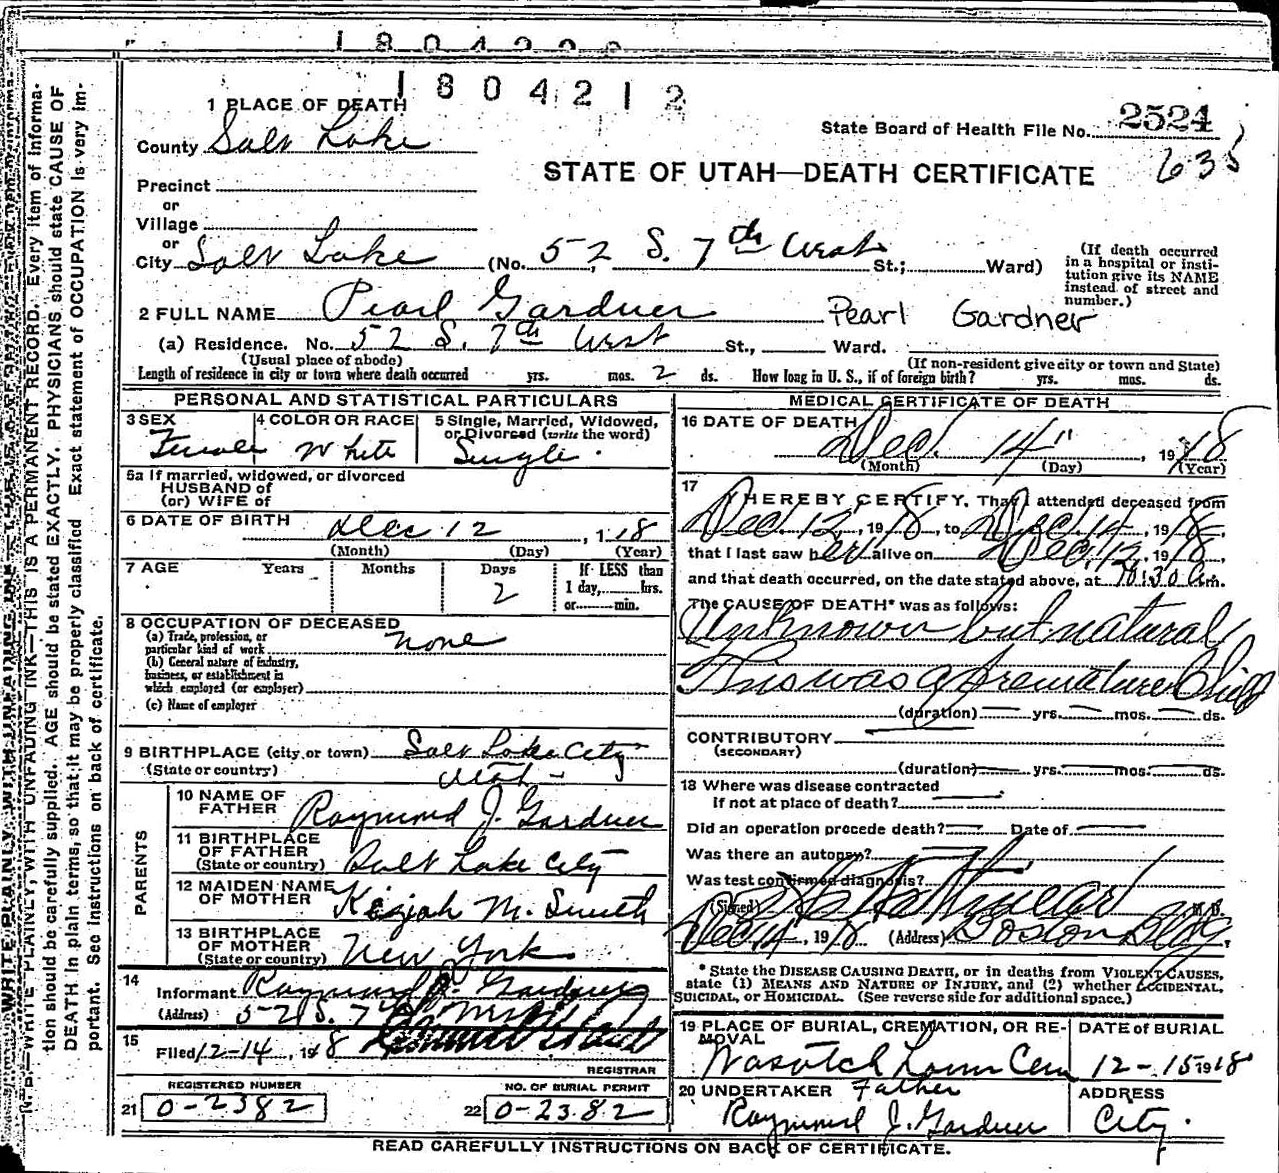 1804212
1 PLACE OF DEATH
County Salt Lake
State Board of Health File No. 2524
635
STATE OF UTAH—DEATH CERTIFICATE
Precinct
or
Village
or
City Salt Lake (No. 52 S. 7th West St.; Ward)
(If death occurred in a hospital or insti-
tution give its NAME
instead of street and
number.)
2 FULL NAME Pearl Gardner Pearl Gardner
(a) Residence. No. 52 S. 7th West St., Ward.
(Usual place of abode) (If non-resident give city or town and State)
Length of residence in city or town where death occurred yrs. mos. 2 ds. How long in U. S., if of foreign birth? yrs. mos. ds.
PERSONAL AND STATISTICAL PARTICULARS
3 SEX 4 COLOR OR RACE 5 Single, Married, Widowed,
or Divorced (write the word)
Female White Single
5a If married, widowed, or divorced
HUSBAND of
(or) WIFE of
6 DATE OF BIRTH Dec 12, 1918
(Month) (Day) (Year)
7 AGE Years Months Days If LESS than
2 1 day, hrs.
or min.
8 OCCUPATION OF DECEASED
(a) Trade, profession, or
particular kind of work none
(b) General nature of industry,
business, or establishment in
which employed (or employer)
(c) Name of employer
9 BIRTHPLACE (city or town) Salt Lake City
(State or country) Utah
PARENTS
10 NAME OF
FATHER Raymond J. Gardner
11 BIRTHPLACE
OF FATHER
(State or country) Salt Lake City
12 MAIDEN NAME
OF MOTHER Keziah M. Smith
13 BIRTHPLACE
OF MOTHER
(State or country) New York
14
Informant Raymond J. Gardner
(Address) 52 S. 7th West
15
Filed 12-14, 1918
REGISTRAR
REGISTERED NUMBER NO. OF BURIAL PERMIT
21 0-2382 22 0-2382
MEDICAL CERTIFICATE OF DEATH
16 DATE OF DEATH
Dec. 14", 1918
(Month) (Day) (Year)
17
I HEREBY CERTIFY, That I attended deceased from
Dec. 12, 1918, to Dec. 14, 1918,
that I last saw her alive on Dec. 12, 1918,
and that death occurred, on the date stated above, at 10:30 a.m.
The CAUSE OF DEATH* was as follows:
Unknown but natural
This was a premature Child
(duration) yrs. mos. ds.
CONTRIBUTORY
(SECONDARY)
(duration) yrs. mos. ds.
18 Where was disease contracted
if not at place of death?
Did an operation precede death? Date of
Was there an autopsy?
Was test confirmed diagnosis?
(Signed) M. D.
Dec 14, 1918 (Address) Boston Bldg.
* State the DISEASE CAUSING DEATH, or in deaths from VIOLENT CAUSES,
state (1) MEANS AND NATURE OF INJURY, and (2) whether ACCIDENTAL,
SUICIDAL, or HOMICIDAL. (See reverse side for additional space.)
19 PLACE OF BURIAL, CREMATION, OR RE-
MOVAL DATE OF BURIAL
Wasatch Lawn Cem 12-15 1918
20 UNDERTAKER Father ADDRESS
Raymond J. Gardner City.
READ CAREFULLY INSTRUCTIONS ON BACK OF CERTIFICATE.
N. B.—WRITE PLAINLY, WITH UNFADING INK—THIS IS A PERMANENT RECORD. Every item of informa-
tion should be carefully supplied. AGE should be stated EXACTLY. PHYSICIANS should state CAUSE OF
DEATH in plain terms, so that it may be properly classified Exact statement of OCCUPATION is very im-
portant. See instructions on back of certificate.